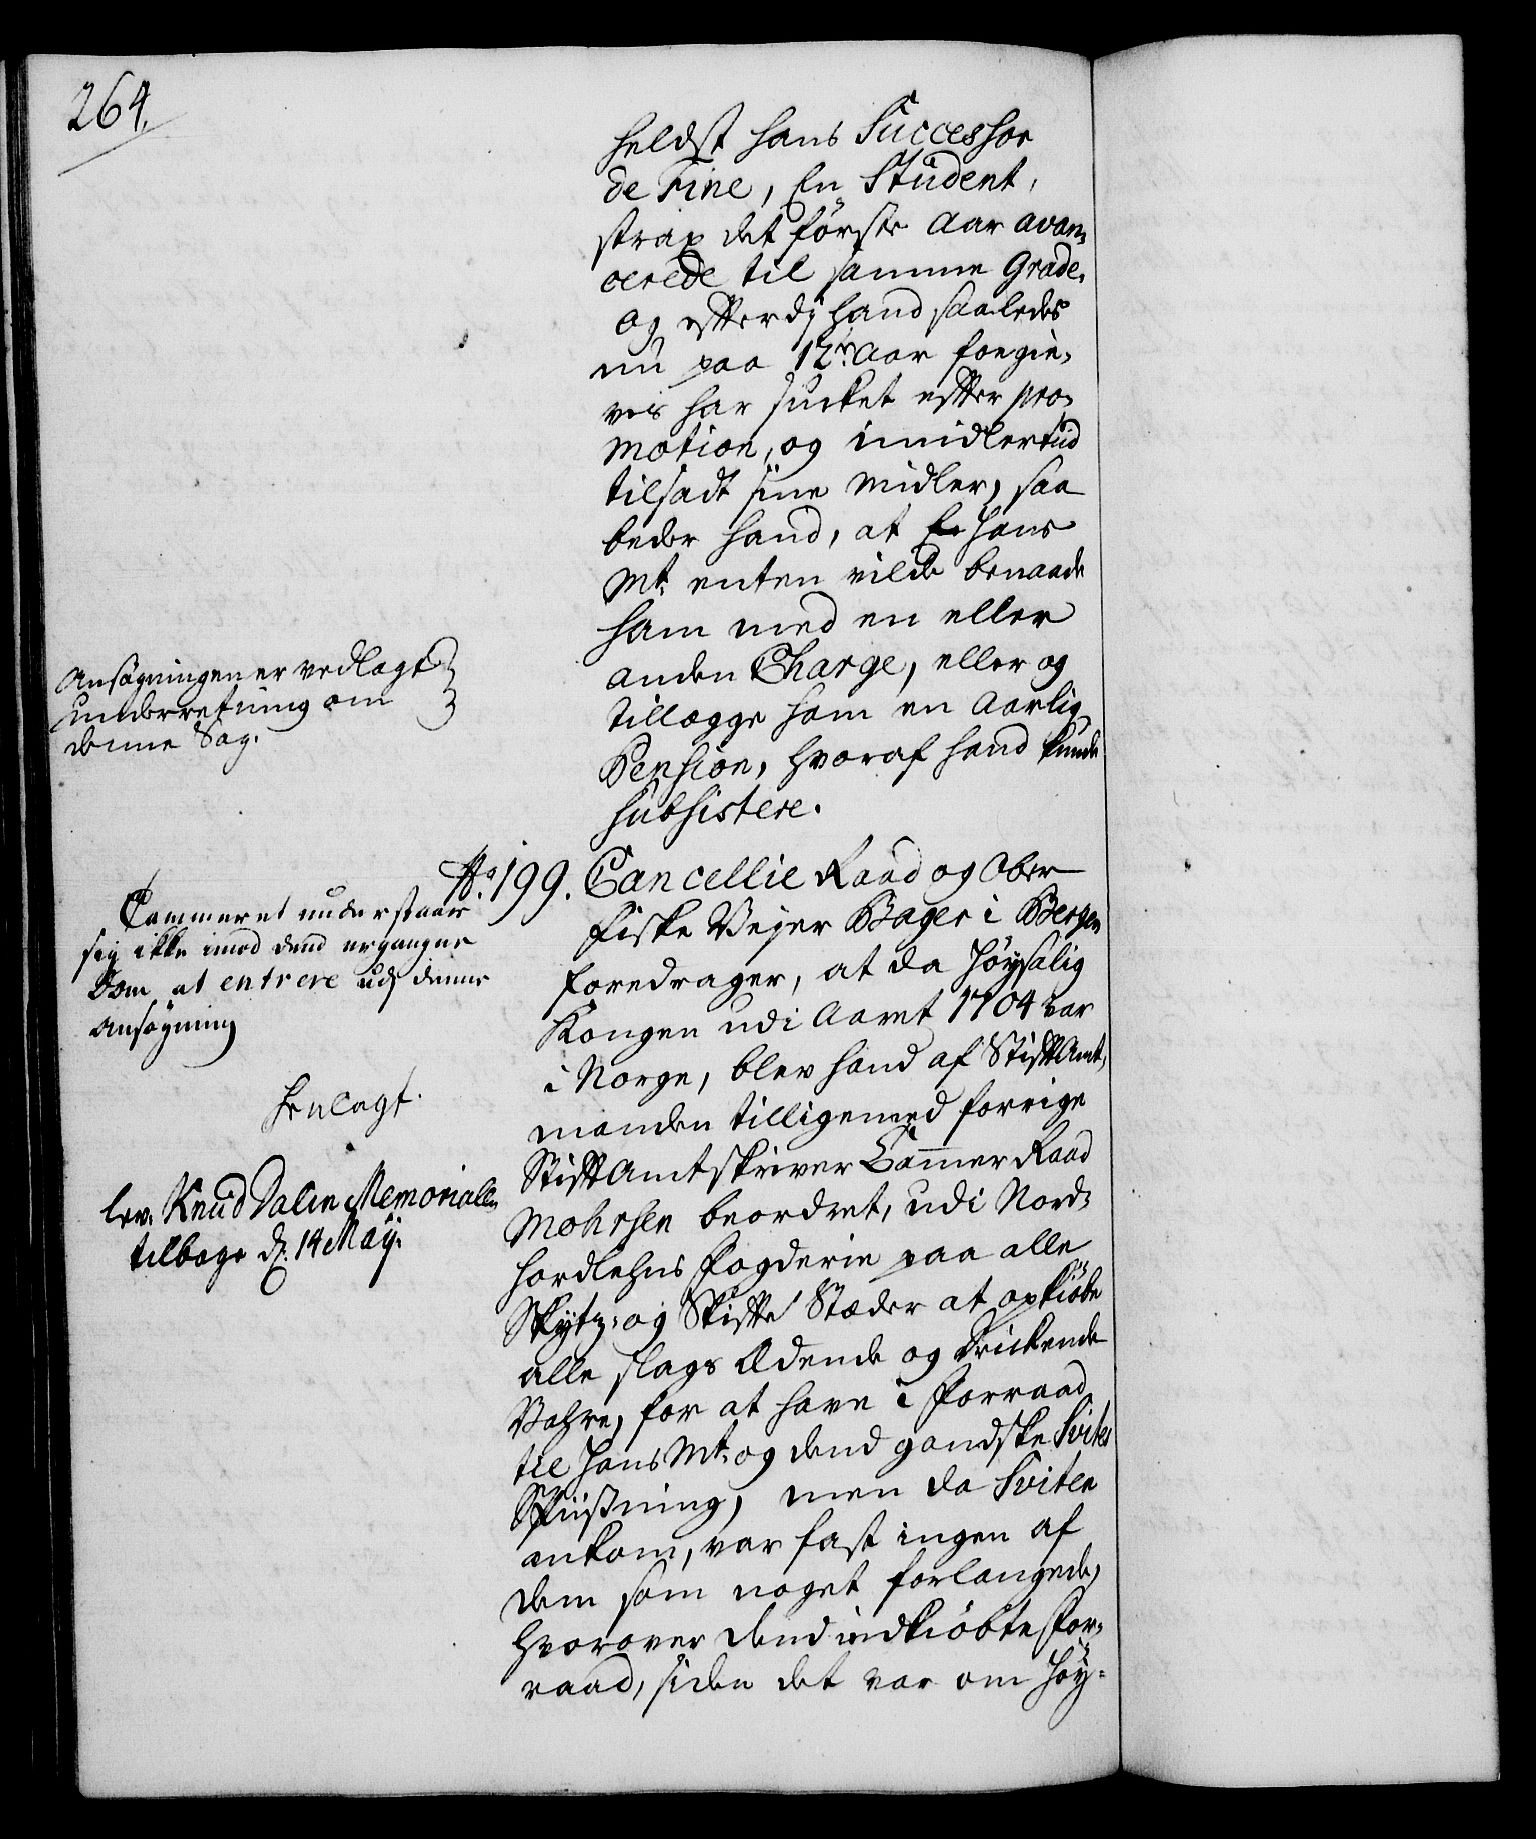 264.
heldst hans Successor
de Fine, En Student,
strax det förste Aar avan-
cerede til samme Grade,
og efterdj hand saaledes
nu paa 12te Aar forgie-
ves har sucket efter pro-
motion, og imidlertiid
tilsadt sine Midler, saa
beder hand, at Hans
Mt. enten vilde benaade
ham med en eller
anden Charge, eller og
tillægge ham en Aarlig
Pension, hvoraf hand kunde
subsistere.
Ansøgningen er vedlagt
underretning om
denne Sag.
No. 199. Cancellie Raad og Ober
Fiske Vejer Bager i Bergen
foredrager, at da Høysalig
Kongen udi Aaret 1704 var
i Norge, blev hand af Stift Amt-
manden tilligemed forrige
Stift Amtskriver Cammer Raad
Mohrsen beordret, udi Nord-
hordlehns Fogderie paa alle
Skytz- og Skifte Stæder at opkiöbe
alle slags Ædende og drickende
Vahre, for at have i Forraad
til Hans Mt. og dend gandske Svites
Spiisning, men da Sviten
ankom, var fast ingen af
dem som noget forlangede,
hvorover dend indkiöbte For-
raad, siden det var om Høy-
Cammeret understaar
sig ikke imod dend ergangne
Dom at entrere udj denne
Ansøgning
Henlagt.
lev. Knud Dalin Memorialen
tilbage d. 14 Maij.